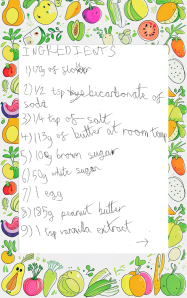 INGREDIENTS
1) 170g of
2) 1/2 tsp bicarbonate of
soda
3) 1/4 tsp of salt
4) 113g of butter at room temp
5) 100g brown sugar
6) 50g white sugar
7) 1 egg
8) 185g peanut butter
9) 1 tsp vanilla extract
→